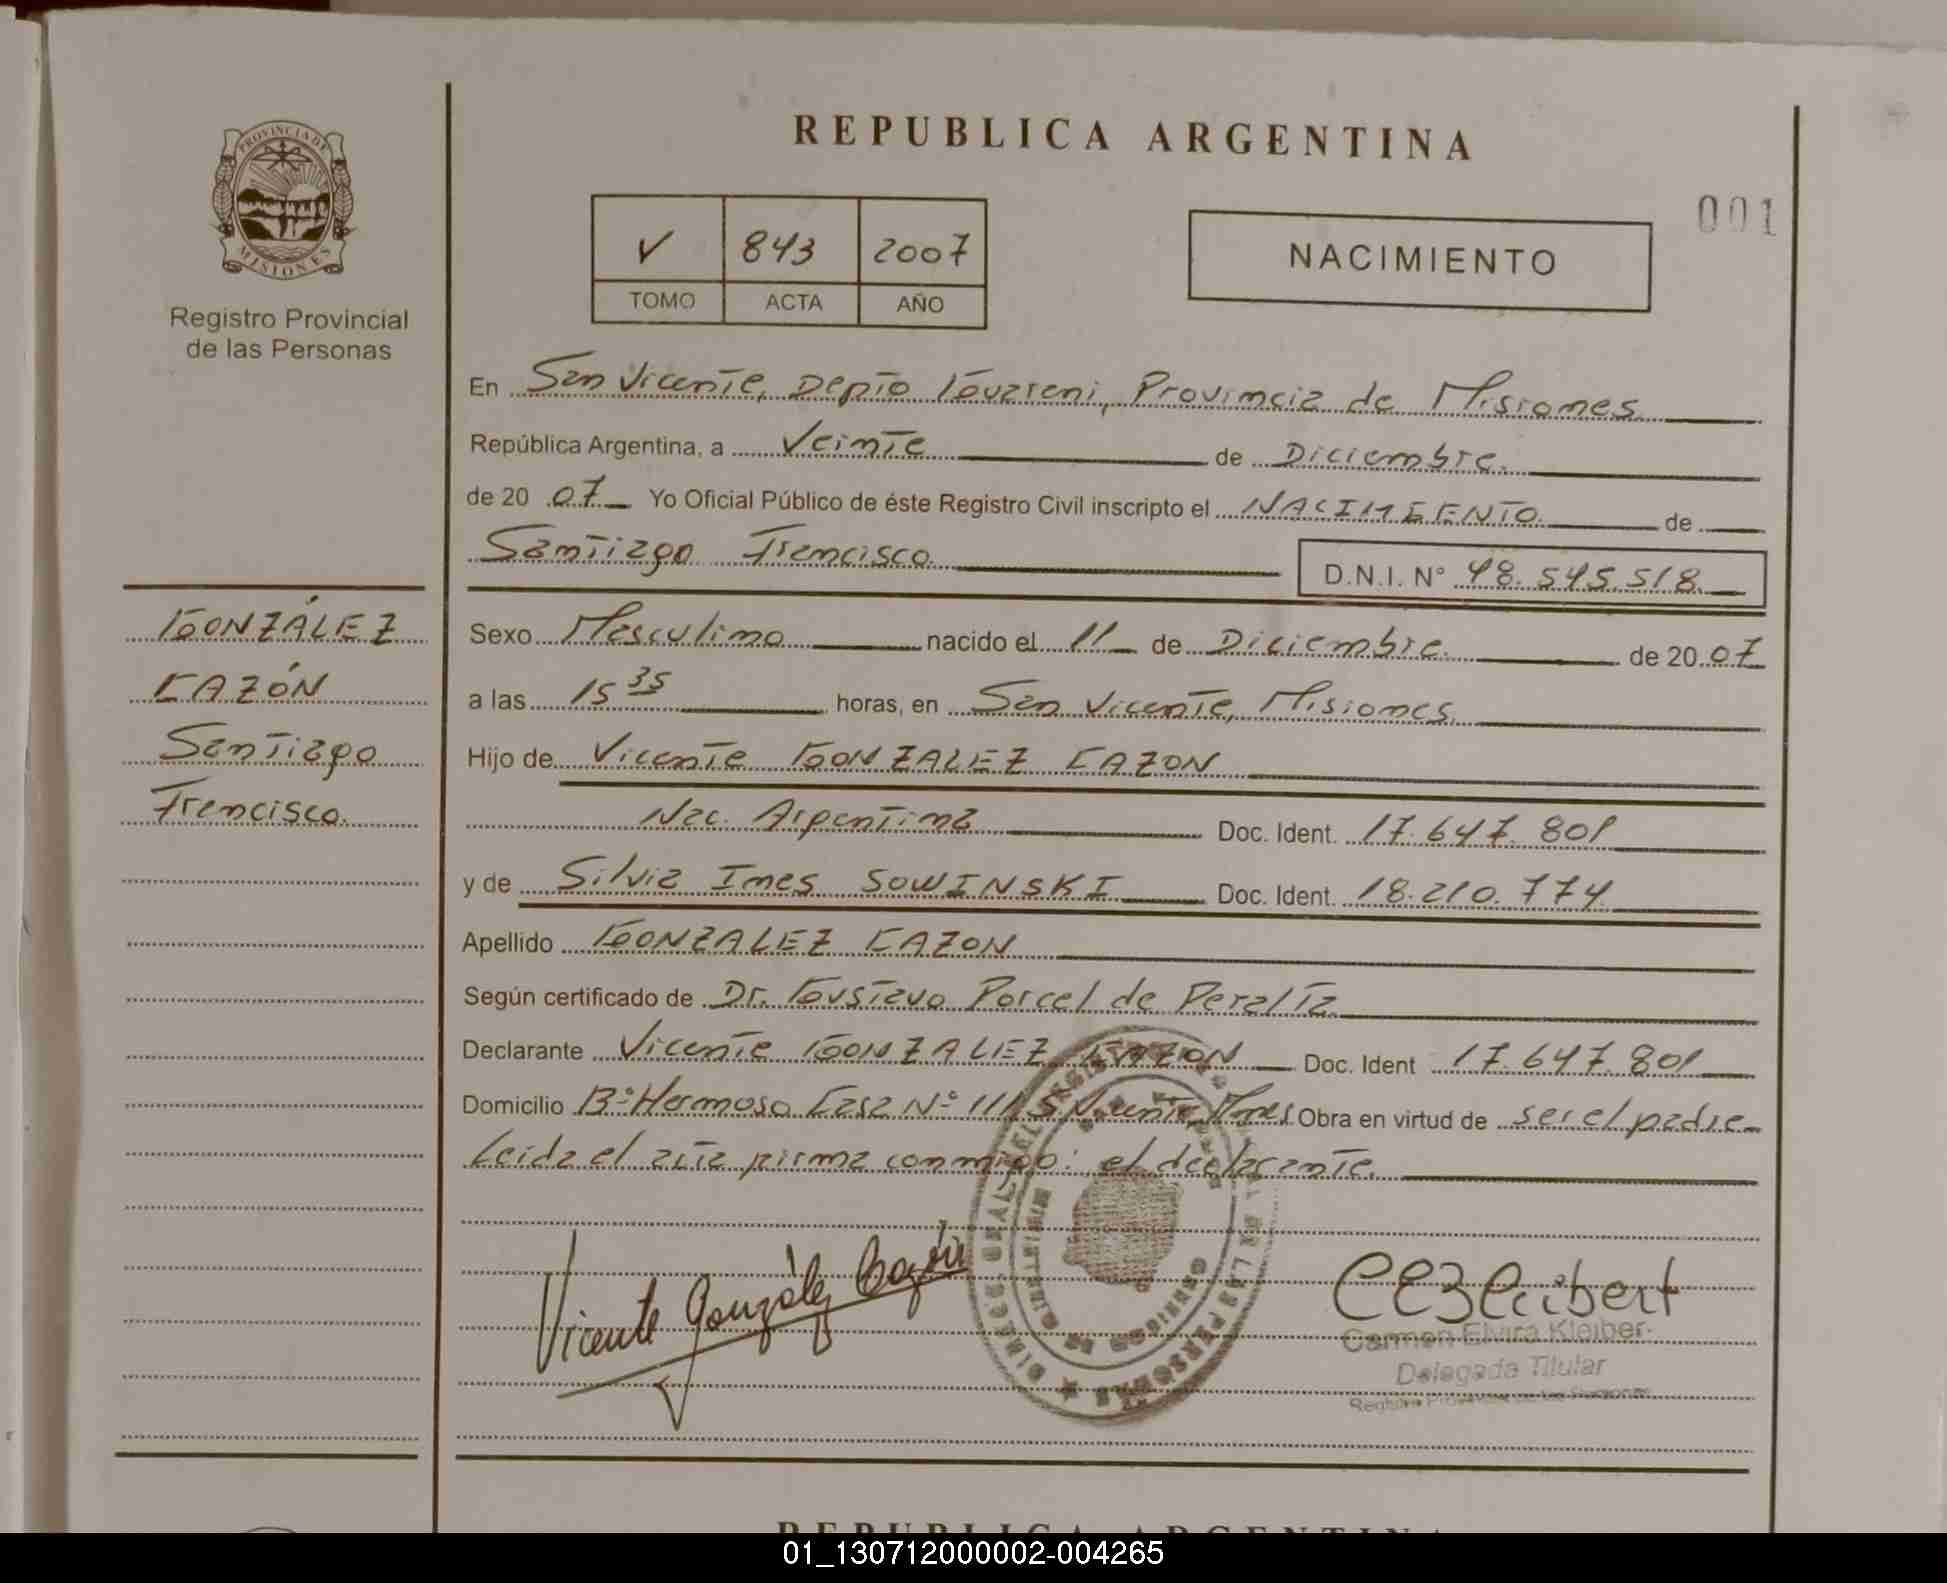 REPUBLICA ARGENTINA
001
PROVINCIA DE
MISIONES
Registro Provincial
de las Personas
V 843 2007
TOMO ACTA AÑO
NACIMIENTO
En San Vicente, Depto Guarani, Provincia de Misiones
República Argentina, a Veinte de Diciembre.
de 20 07 Yo Oficial Público de éste Registro Civil inscripto el NACIMIENTO de
Santiago Francisco
D.N.I. N° 48.545.518
GONZÁLEZ
CAZÓN
Santiago
Francisco.
Sexo Masculino nacido el 11 de Diciembre. de 20 07
a las 15 35 horas, en San Vicente, Misiones
Hijo de Vicente GONZALEZ CAZON
Nac. Argentina Doc. Ident. 17.647.801
y de Silvia Ines SOWINSKI Doc. Ident. 18.210.774
Apellido GONZALEZ CAZON
Según certificado de Dr. Gustavo Porcel de Peralta
Declarante Vicente GONZALEZ CAZON Doc. Ident 17.647.801
Domicilio B° Hermoso Casa N° 111 S Vicente, Mnes Obra en virtud de ser el padre
Leida el acta firma conmigo: el declarante.
Vicente González Cazón
Carmen Elvira Kleiber
Delegada Titular
Registro Provincial de las Personas
REPUBLICA ARGENTINA
01_130712000002-004265